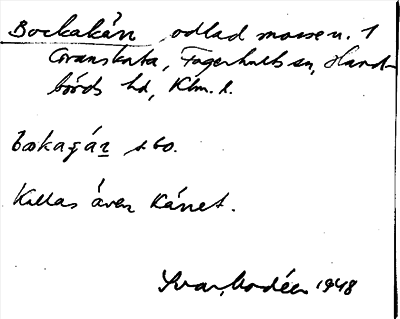 Bockakán, odlad mosse n. 1
Granskata, Fagerhults sn, Hand-
börds hd, Klm. l.
båkagáɳ sbo.
Kallas även Kánet.
Ivar Modéer 1948